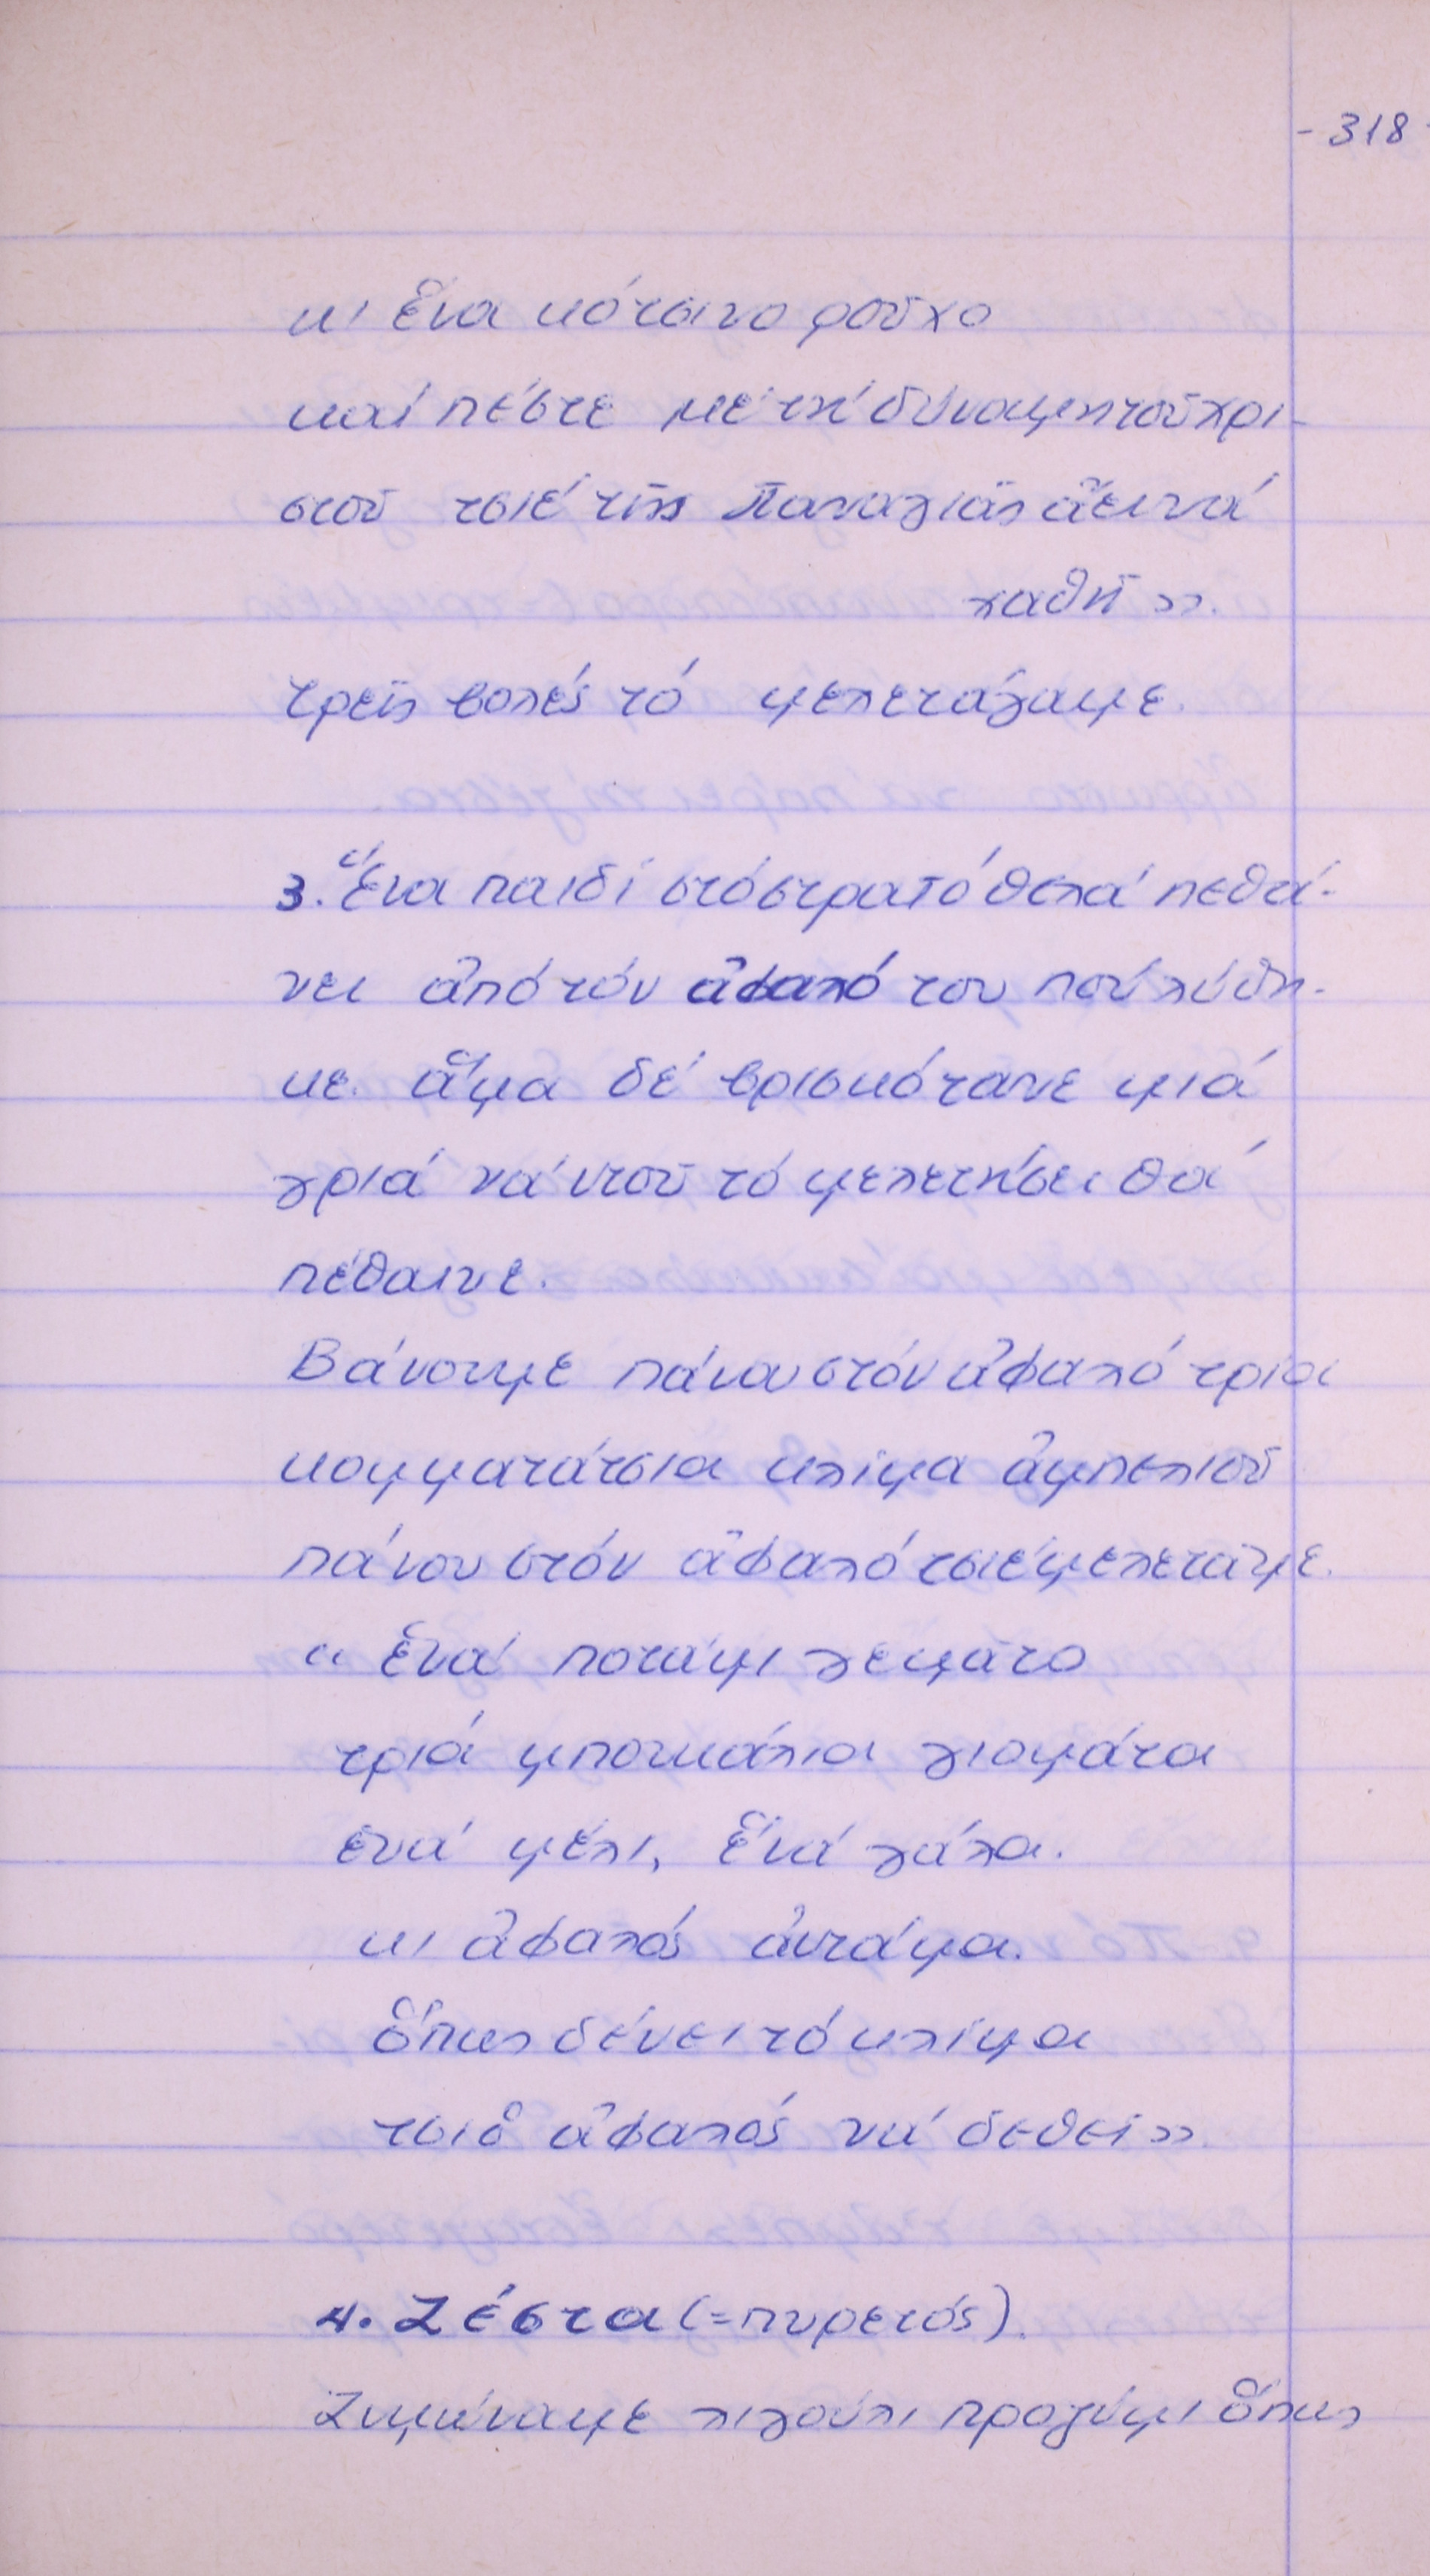 - 318 -
κι ἕνα κότσινο ροῦχο
καί πέστε μέ τή δύναμη τοῦ χρι-
στοῦ τσιέ τῆς Παναγιᾶς ἄει νά
χαθῆ».
τρεῖς βολές τό μελετάγαμε.
3. Ἕνα παιδί στό στρατό θελά πεθά-
νει ἀπό τόν ἀφαλό του πού λύθη-
κε. ἅμα δέ βρισκότανε μιά
γριά νά ντοῦ τό μελετήσει θά
πέθαινε.
Βάνουμε πάνου στόν ἀφαλό τρία
κομματάτσια κλίμα ἀμπελιοῦ
πάνου στόν ἀφαλό τσιέ μελετᾶμε.
« ἕνά ποτάμι γεμάτο
τριά μπουκάλια γιομάτα
ἕνά μέλι, ἕνά γάλα.
κι ἀφαλός ἀντάμα.
Ὅπως δένει τό κλίμα
τσι ὁ ἀφαλός νά δεθεί».
4. Ζέστα (=πυρετός).
Ζυμώναμε λιγούλι προζύμι ὅπως